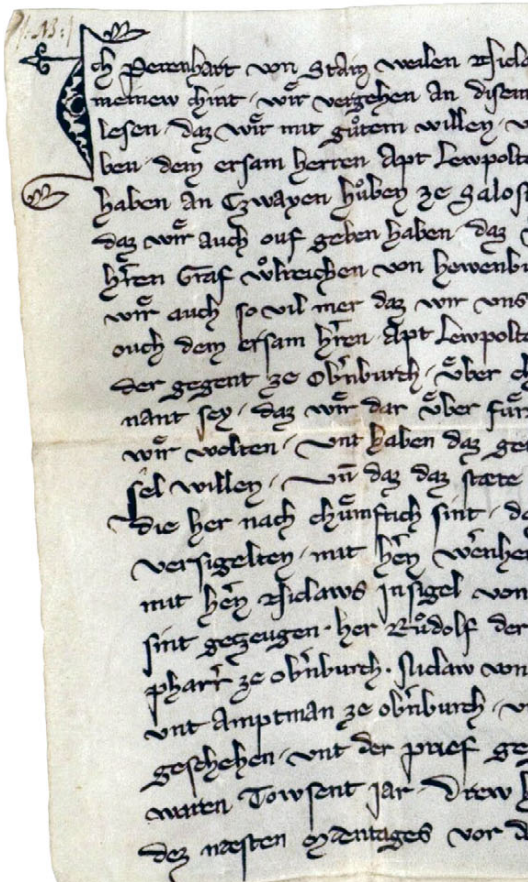 : 13 :
Ich Perenhart von Stain weilen Nicla
meinew chint · wir vergehen An disem
lesen · daz wir mit guͦtem willen · v
ben · dem ersam herren Apt Lewpolt
haben An Czwayen huͦben ze Salos
daz wir auch ouf geben haben · daz
hr̄en Graf vͦlreichen von hewenbu
wir auch so vil mer daz wir vns
ouch dem ersam hr̄en · Apt Lewpolt
der gegent ze Obn̄burch · vͤber ch
nant sey · daz wir dar vͤber fuͤr
wir wolten · vnt haben daz ge
sel willen · vn̄ daz daz stæte
die her nach chuͤmftich sint · d
versigelten · mit hern̄ wernhe
mit hern̄ Niclaws Insigel von
sint geczeugen · her Ruͦdolf der
pharr̄ ze obn̄burch · Niclaw von
vnt Amptman ze obn̄burch · v
geschehen · vnt der prief ge
waren Towsent jar · Drew h
dez næsten Mæntages vor d